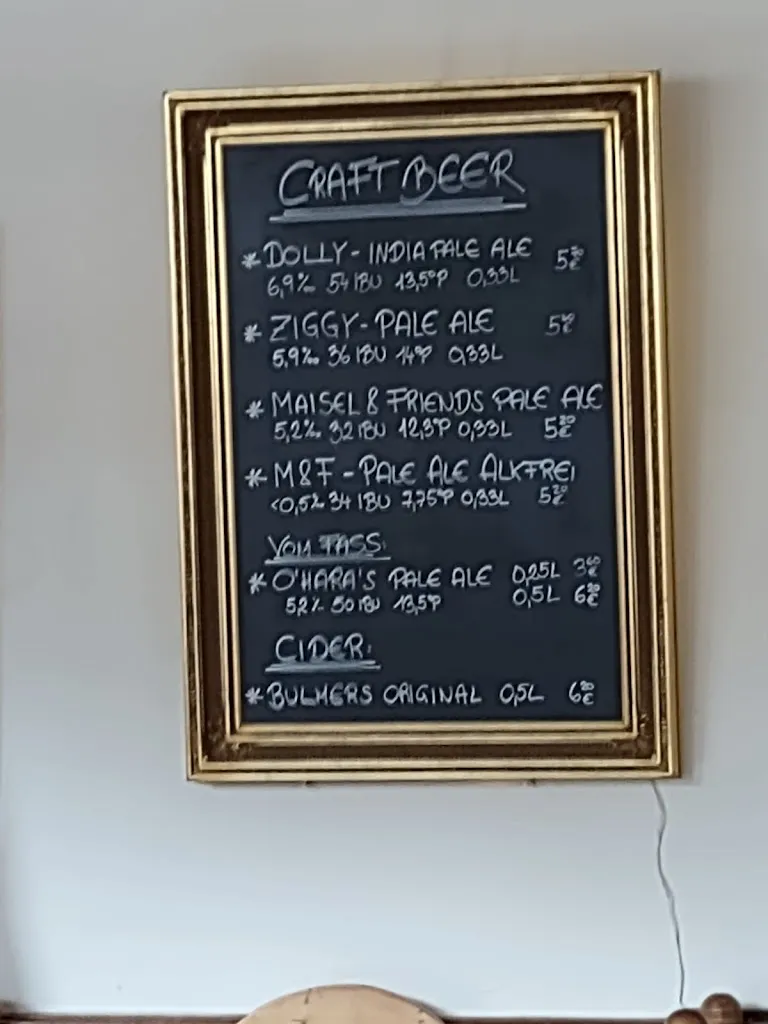 CRAFT BEER
* DOLLY - INDIA PALE ALE
6,9% 54 IBU 13,5°P 0,33L
* ZIGGY - PALE ALE
5,9% 36 IBU 14°P 0,33L
* MAISEL & FRIENDS PALE ALE
5,2% 32 IBU 12,3°P 0,33L 5²⁰€
* M&F - PALE ALE ALKFREI
<0,5% 34 IBU 7,75°P 0,33L 5²⁰€
VOM FASS:
* O'HARA'S PALE ALE 0,25L 3⁶⁰€
5,2% 50 IBU 13,5°P 0,5L
CIDER:
* BULMERS ORIGINAL 0,5L